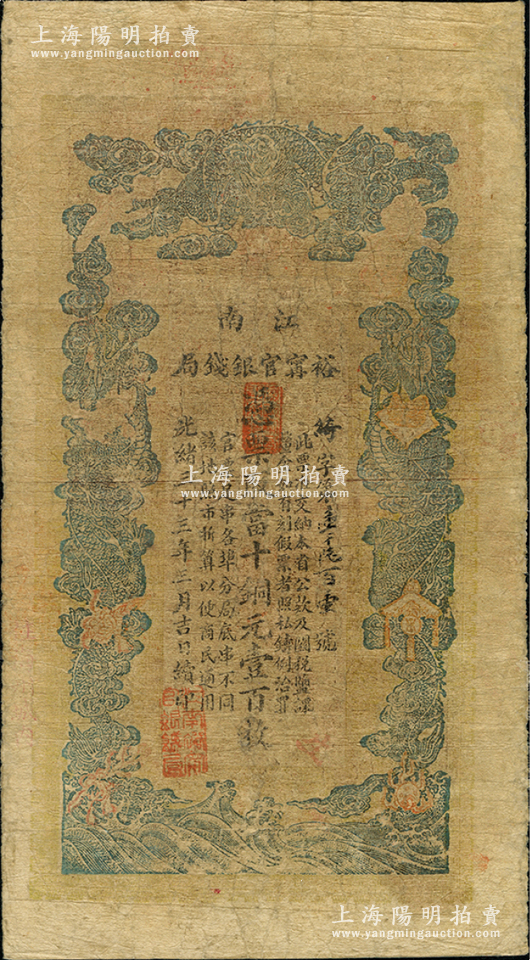 上海陽明拍賣
www.yangmingauction.com
江南
裕甯官銀錢局
字第壹千 百 號
此票 交納本省公款及關稅鹽課
有刻假票者照私鑄例治罪
憑票 當十銅元壹百枚
官 串各埠分局底串不同
該 市折算以便商民通用
光緒三十三年二月吉日續印
上海陽明拍賣
www.yangmingauction.com
上海陽明拍賣
www.yangmingauction.com